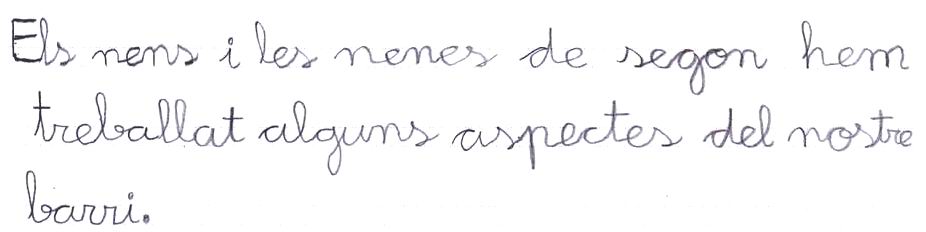 Els nens i les nenes de segon hem
treballat alguns aspectes del nostre
barri.